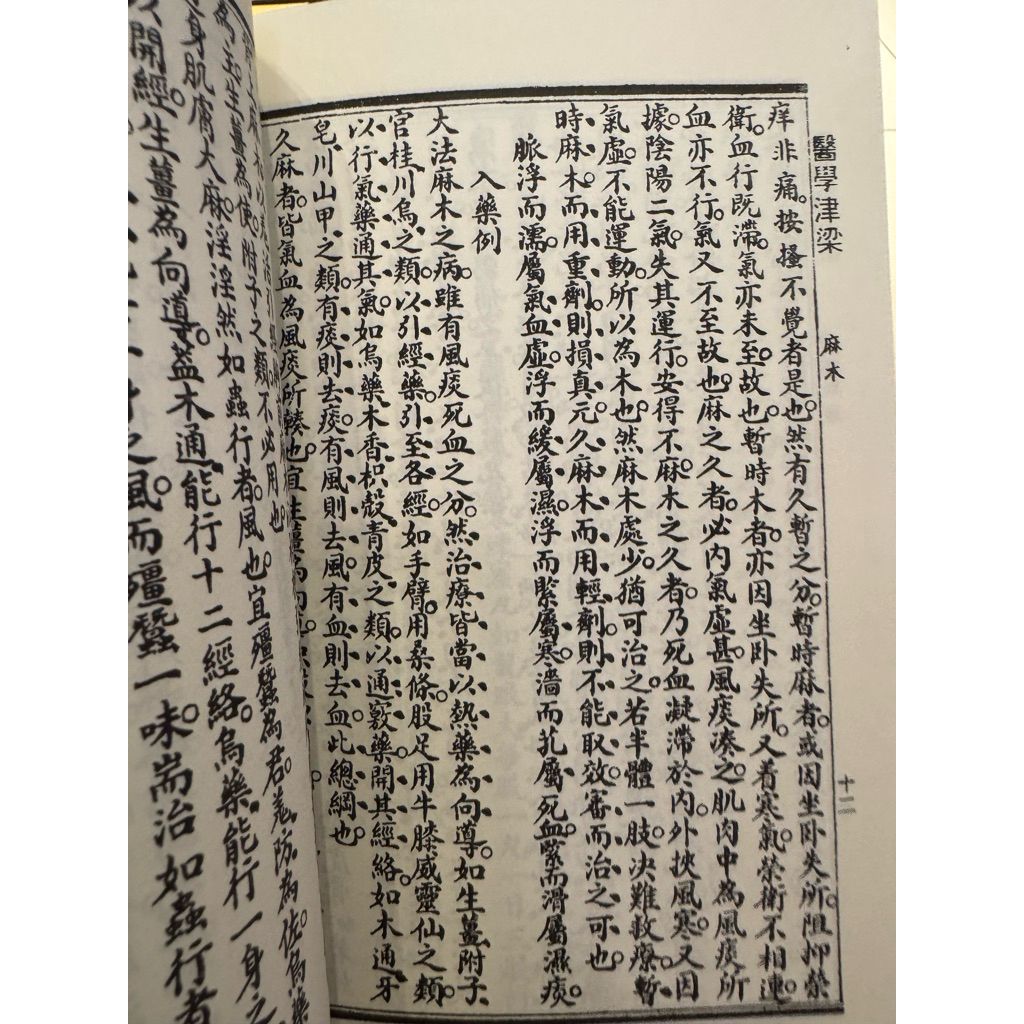 醫學津梁
麻木
十二
痒非痛。按搔不覺者是也。然有久暫之分。暫時麻者。或因坐卧失所。阻抑榮
衛。血行既滯。氣亦未至。故也。暫時木者。亦因坐卧失所。又着寒氣。榮衛不相連。
血亦不行。氣又不至故也。麻之久者。必内氣虛甚。風痰湊之。肌肉中為風痰所
據。陰陽二氣。失其運行。安得不麻。木之久者。乃死血凝滯於内。外挾風寒。又因
氣虛。不能運動。所以為木也。然麻木處少。猶可治之。若半體一肢。决難救療。暫
時麻木。而用重劑。則損真元。久麻木而用輕劑。則不能取效。審而治之可也
脈浮而濡。屬氣血虛。浮而緩。屬濕。浮而緊。屬寒。濇而芤。屬死血。緊而滑屬濕痰
入藥例
大法麻木之病。雖有風痰死血之分。然治療皆當以熱藥為向導。如生薑附子
官桂川烏之類。以引經藥。引至各經。如手臂。用桑條。股足用牛膝威靈仙之類
以行氣藥通其氣。如烏藥木香枳殼青皮之類。以通竅藥。開其經絡。如木通牙
皂川山甲之類。有痰則去痰。有風則去風。有血則去血。此總綱也
久麻者。皆氣血為風痰所轃也。宜生薑為向
為君。羌防為佐。烏藥
為使。附子之類。不必用也
身肌膚大麻。淫淫然如蟲行者。風也。宜殭蠶為君。羌防為佐。烏藥
為主。生薑為使
開經。生薑為向導。蓋木通能行十二經絡。烏藥能行一身之
之風。而殭蠶一味耑治如蟲行者